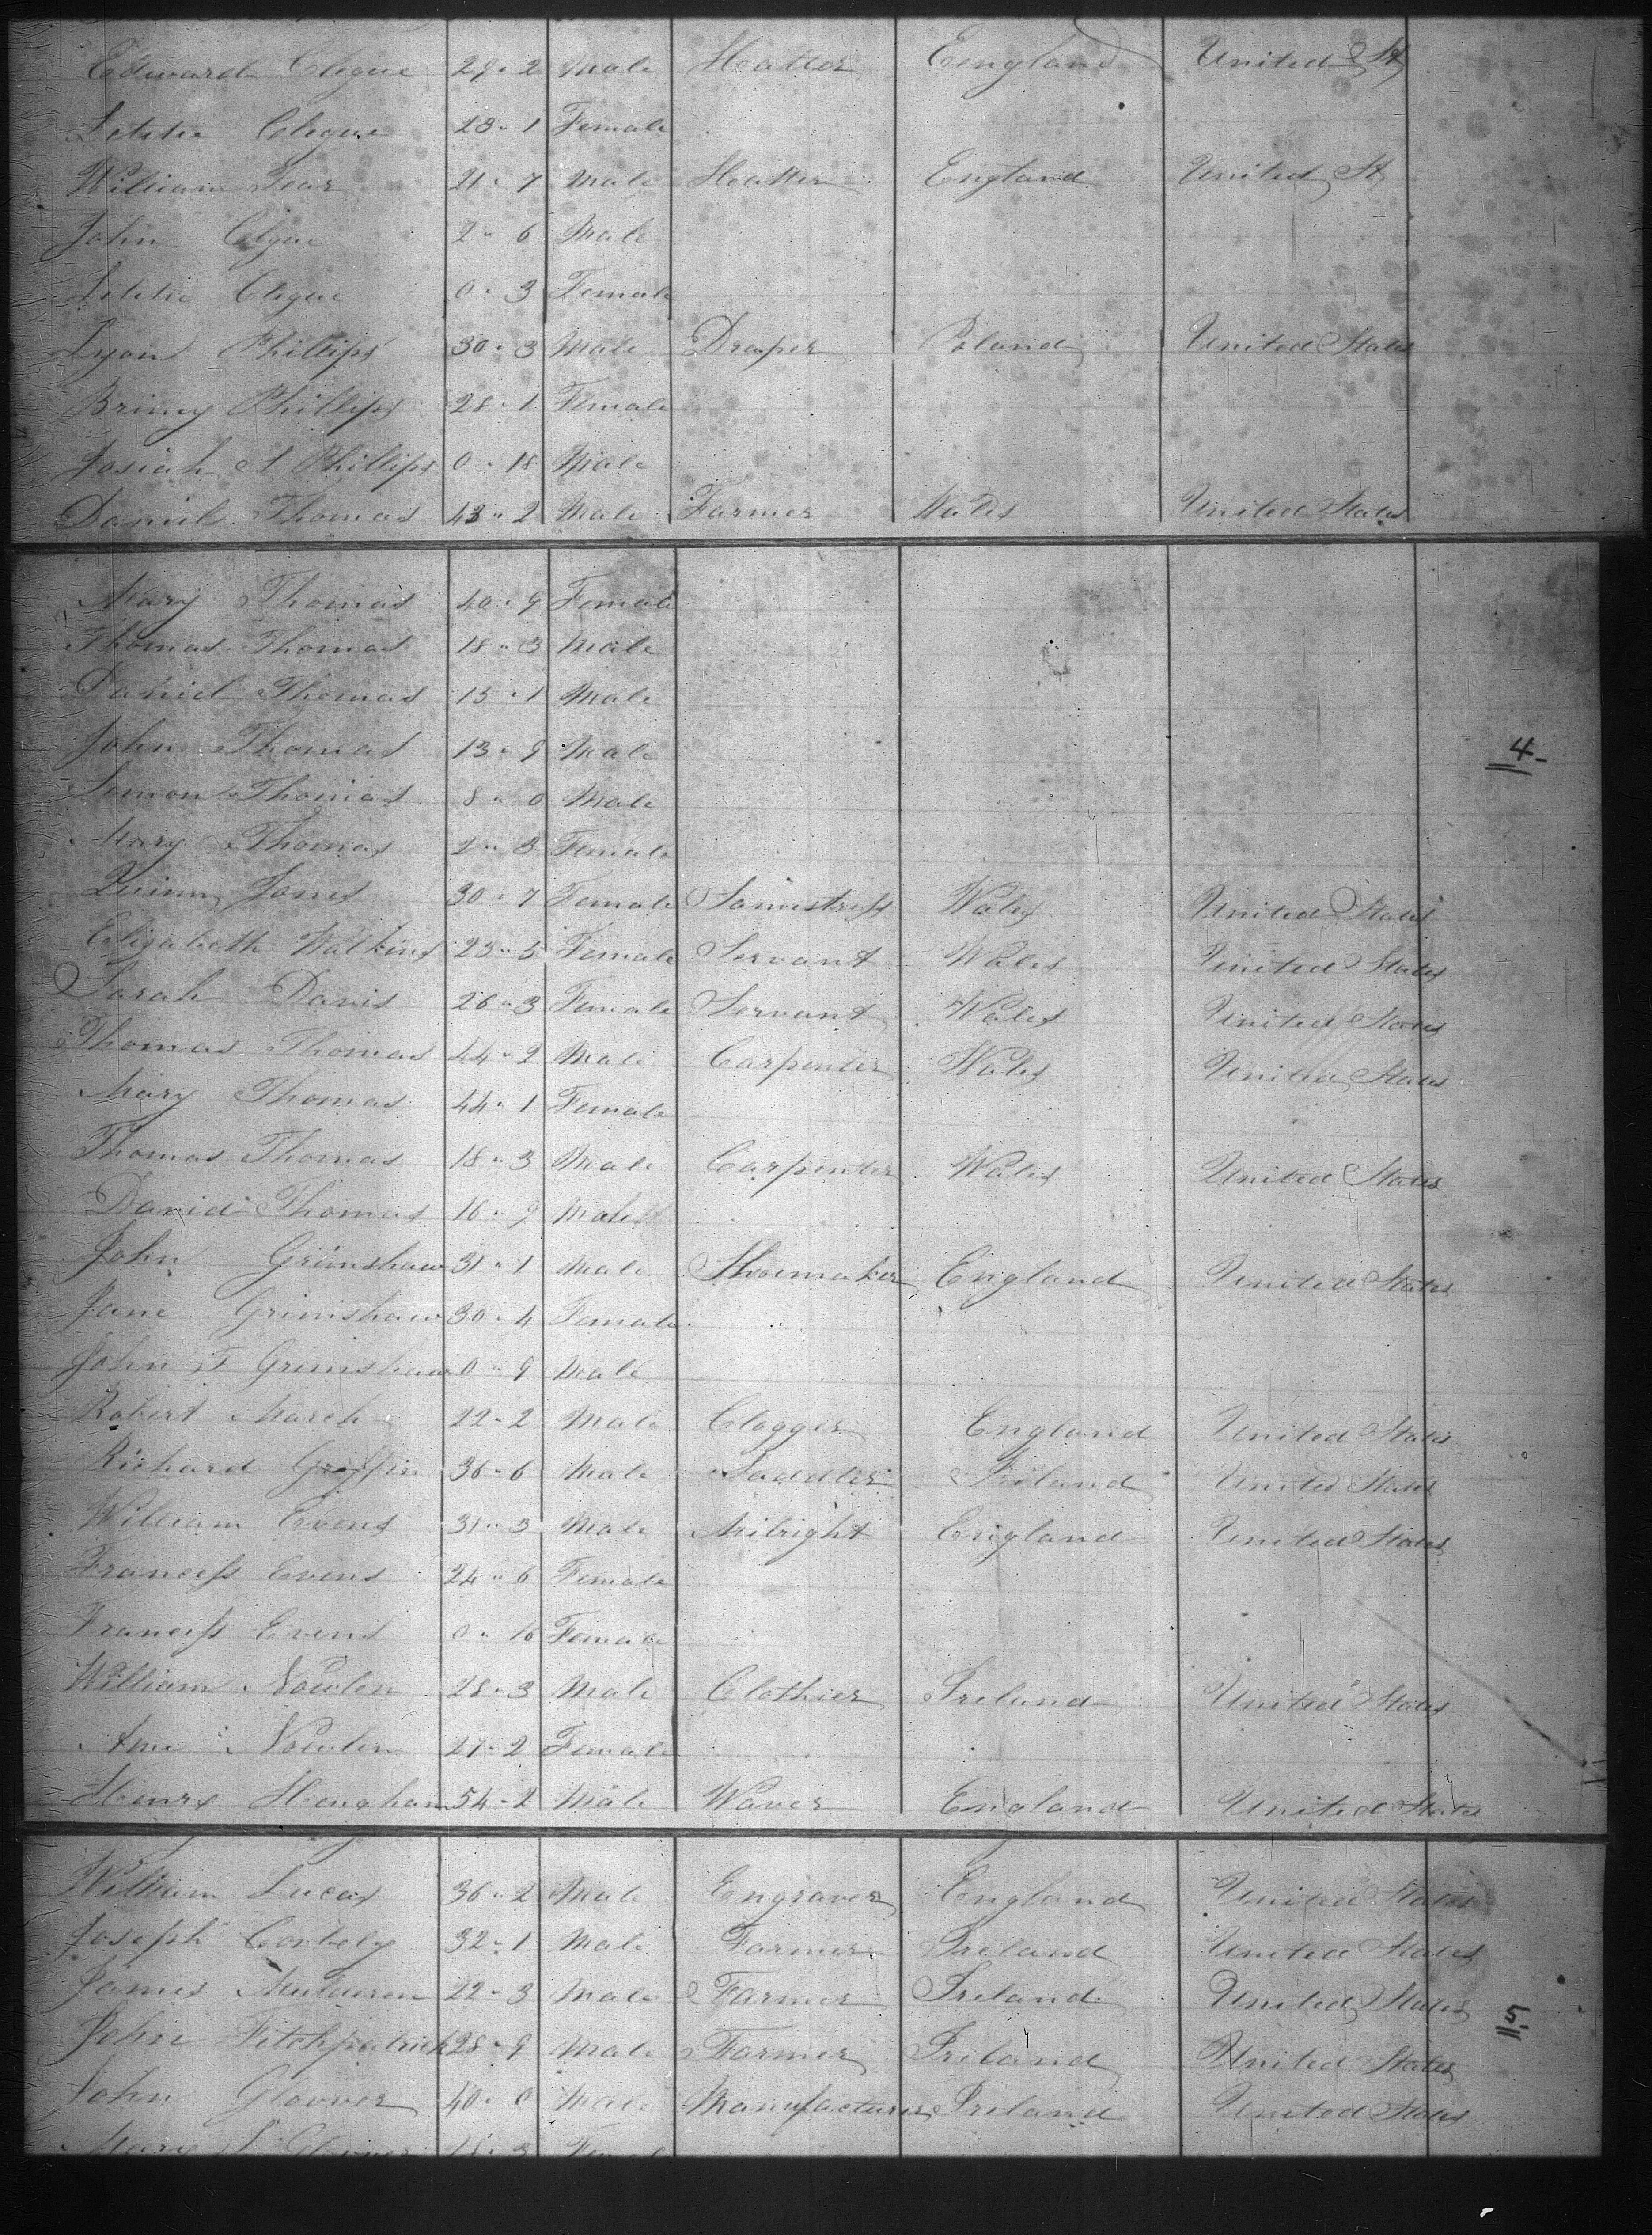 Edward Clegue 29 " 2 Male Hatter England United St
Letitie Clegue 28 " 1 Female
William Tear 21 " 7 Male Hatter England United St
John Clegue 2 " 6 Male
Letitie Clegue 0 " 3 Female
Lyon Phillips 30 " 3 Male Draper Poland United States
Briney Phillips 28 " 1 Female
Josiah A Phillips 0 " 18 Male
Daniel Thomas 43 " 2 Male Farmer Wales United States
Mary Thomas 40 " 9 Female
Thomas Thomas 18 " 3 Male
Daniel Thomas 15 " 1 Male
John Thomas 13 " 9 Male
4
Thomas 8 " 0 Male
Mary Thomas 2 " 3 Female
Jones 30 " 7 Female Samestress Wales United States
Elizabeth Watkins 23 " 5 Female Servant Wales United States
Sarah Davis 26 " 3 Female Servant Wales United States
Thomas Thomas 44 " 2 Male Carpenter Wales United States
Mary Thomas 44 " 1 Female
Thomas Thomas 18 " 3 Male Carpenter Wales United States
David Thomas 16 " 9 Male
John Grimshaw 31 " 1 Male Shoemaker England United States
Jane Grimshaw 30 " 4 Female
John T Grimshaw 0 " 9 Male
Robert March 22 " 2 Male Clogger England United States
Richard Griffin 36 " 6 Male Saddler Ireland United States
William Evens 31 " 3 Male Milright England United States
Francess Evens 24 " 6 Female
Francess Evens 0 " 16 Female
William Nowlen 28 " 3 Male Clothier Ireland United States
Ann Nowlen 27 " 2 Female
Henry Hengham 54 " 2 Male Waver England United States
William Lucas 36 " 2 Male Engraver England United States
Joseph Corbely 32 " 1 Male Farmer Ireland United States
James 22 " 3 Male Farmer Ireland United States
5
John Fitchpatrick 28 " 9 Male Farmer Ireland United States
John Glovver 40 " 0 Male Manufacturer Ireland United States
Mary